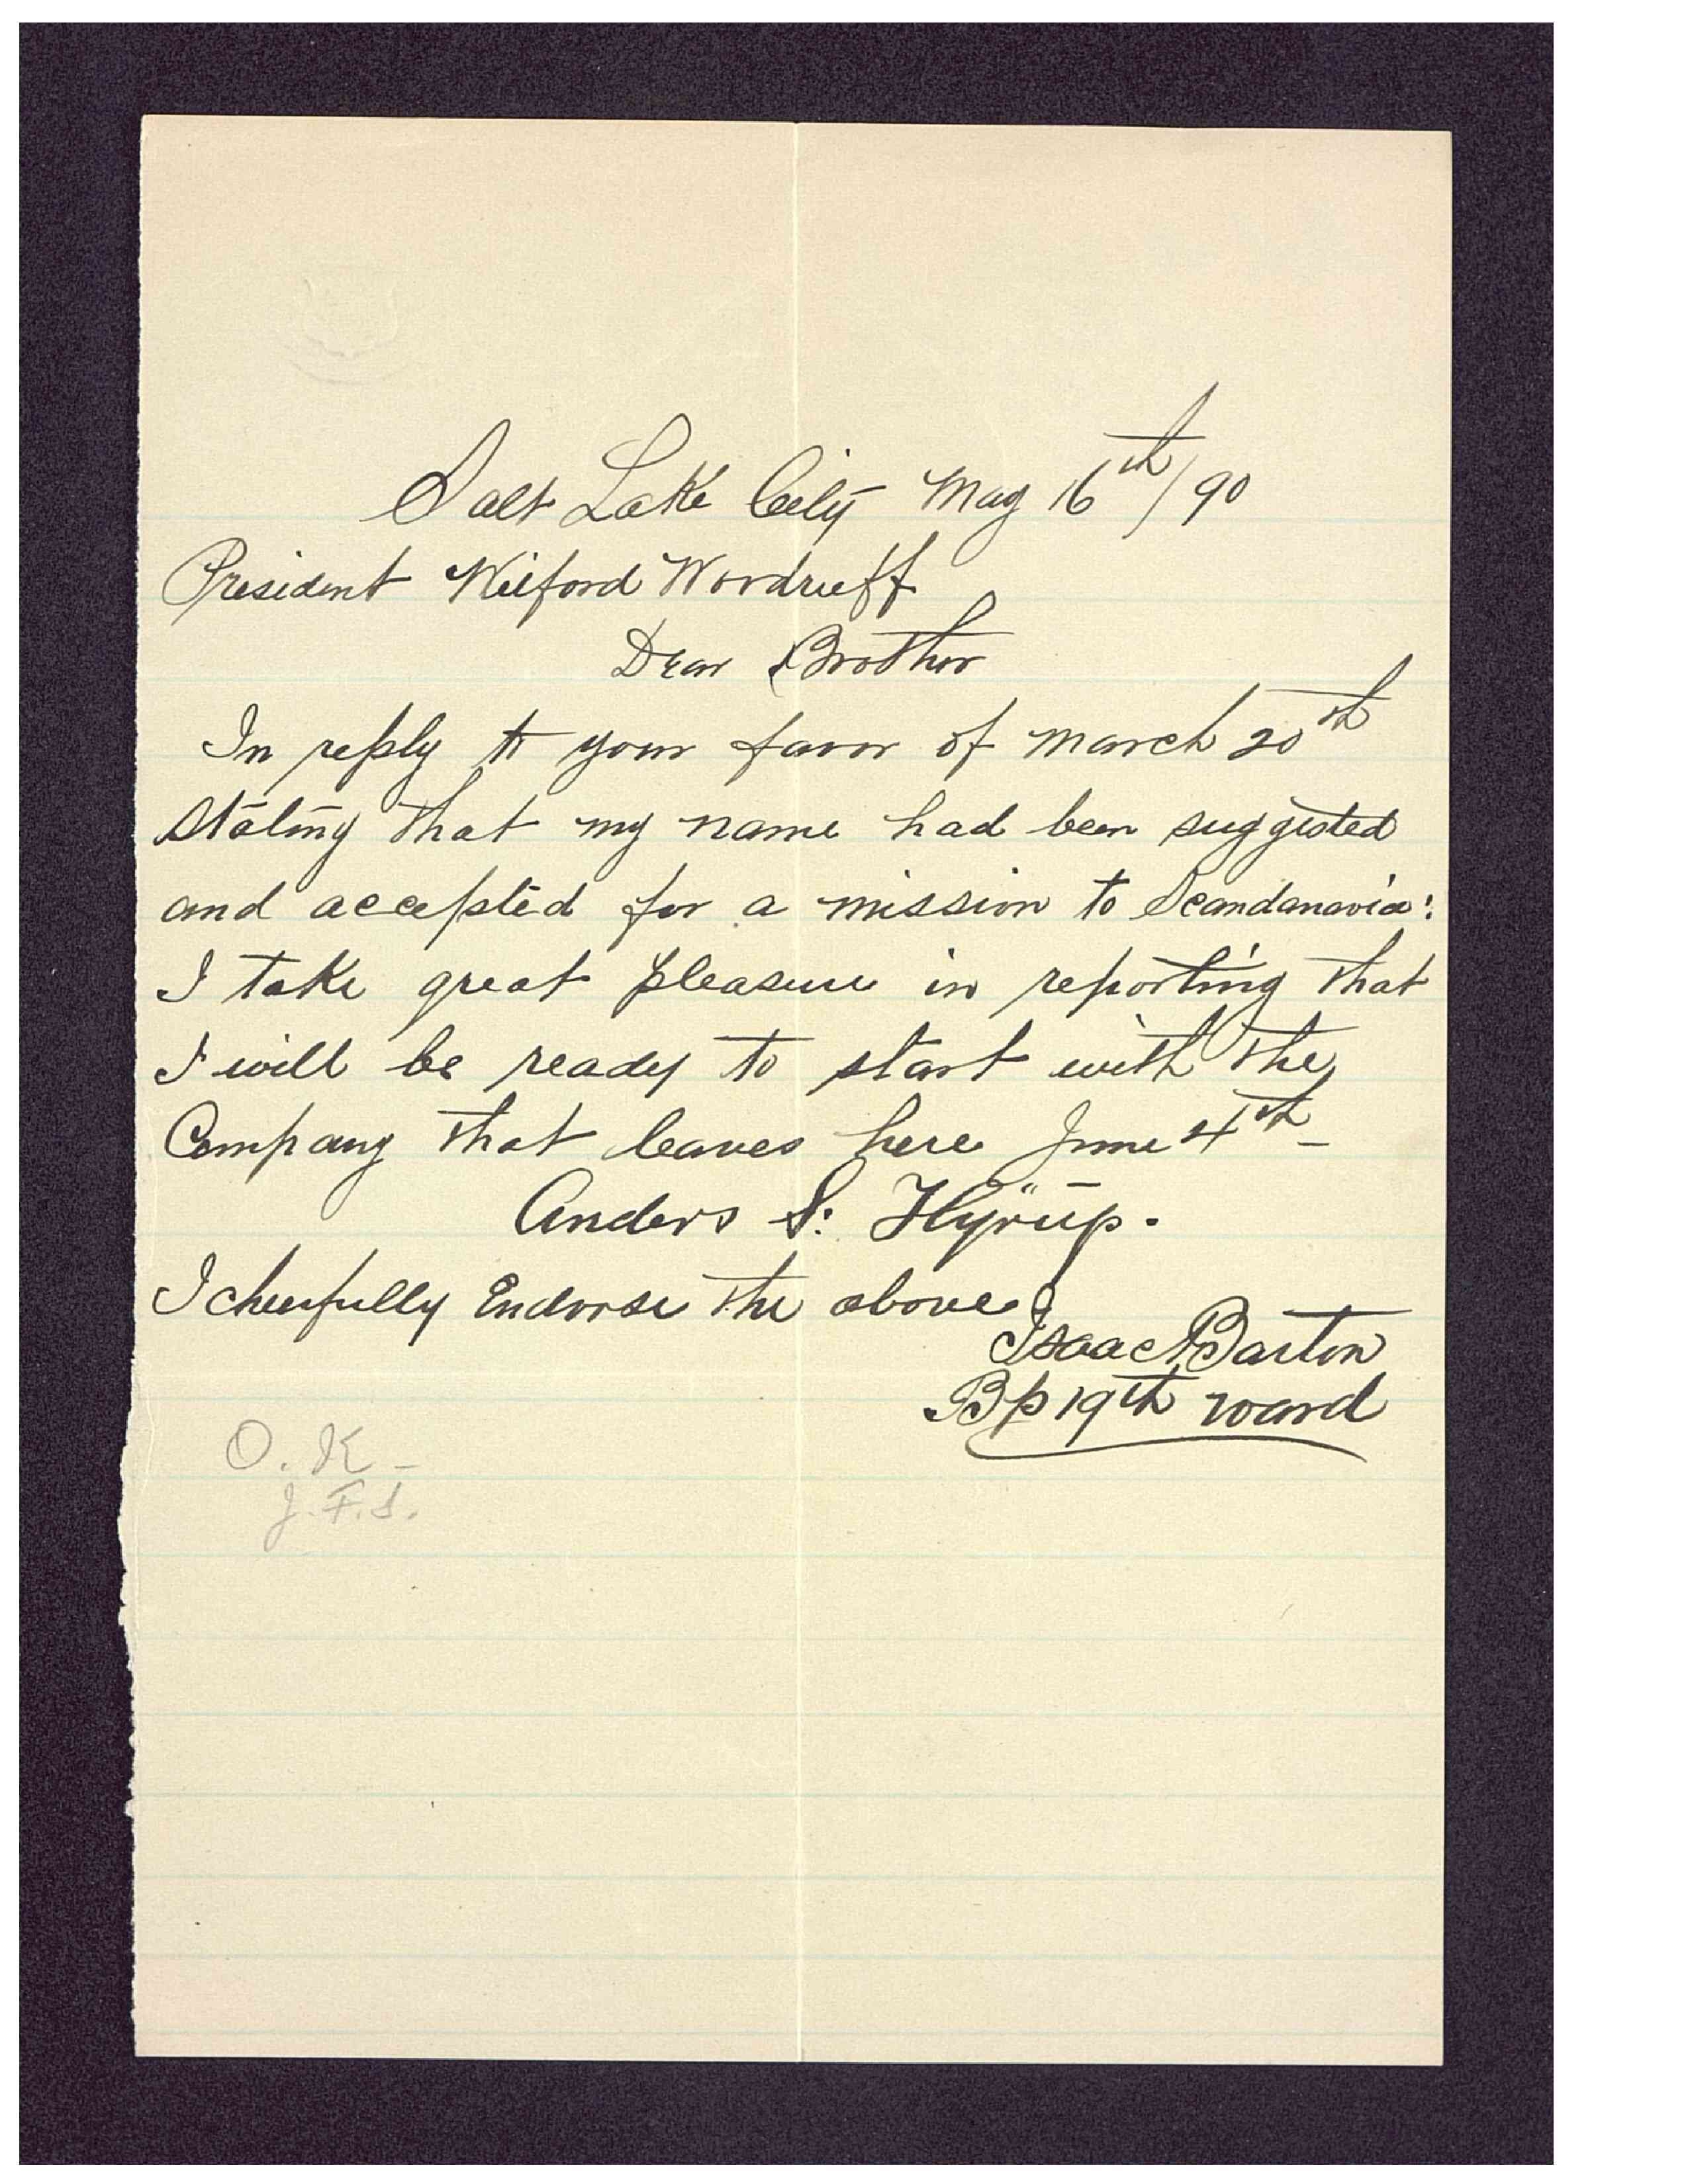 Salt Lake City May 16th/90
President Wilford Woodruff
Dear Brother
In reply to your favor of March 20th
stating that my name had been suggested
and accepted for a mission to Scandanavia:
I take great pleasure in reporting that
I will be ready to start with the
Company that leaves here June 4th –
Anders S: Hyrup.
I cheerfully Endorse the above
Isaac Barton
Bp 19th ward
O. K –
J. F. S.